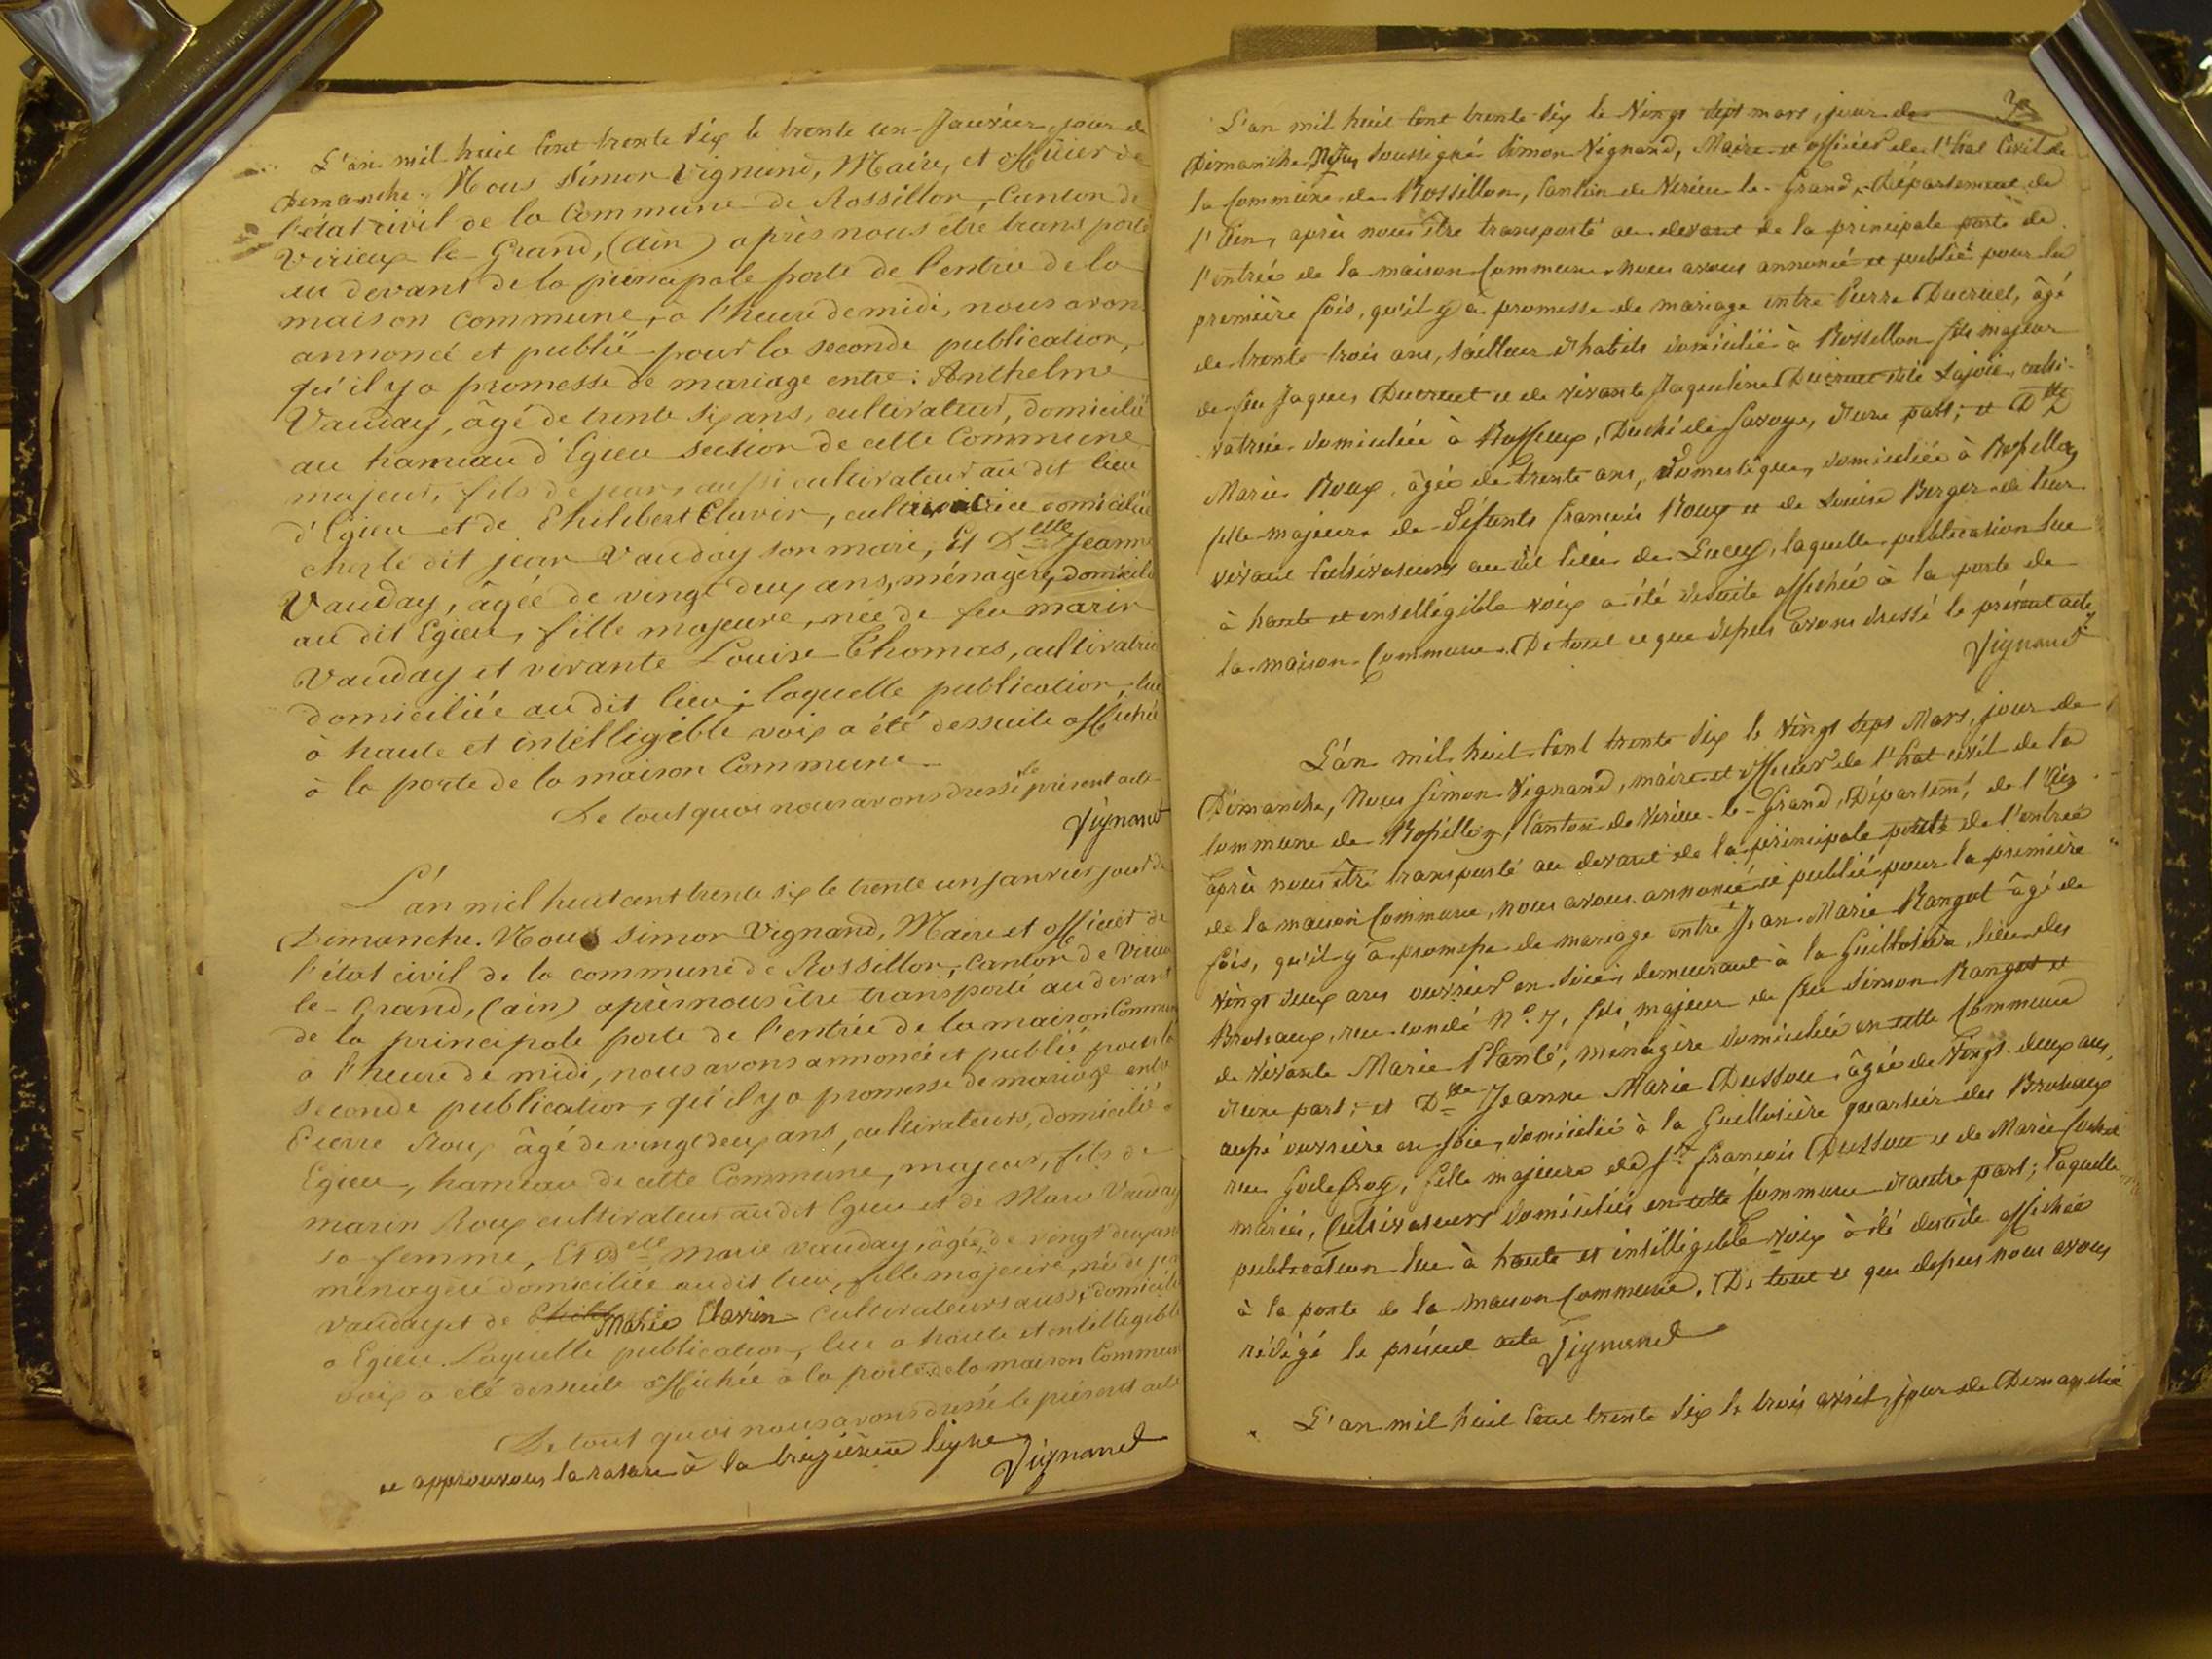 L'an mil huit Cent trente Six le trente un Janvier, jour de
Dimanche. Nous Simon Vignand, Maire, et officier de
l'état civil de la Commune de Rossillon, Canton de
Virieux le Grand, (Ain) après nous être transporté
au devant de la principale porte de l'entrée de la
maison commune, à l'heure de midi, nous avons
annoncé et publié pour la seconde publication,
qu'il y a promesse de mariage entre : Anthelme
Vauday, âgé de trente six ans, cultivateur, domicilié
au hameau d'Egieu section de cette Commune
majeur, fils de jean, aussi cultivateur au dit lieu
d'Egieu et de Philibert Clavin, cultivatrice domiciliée
chez le dit jean Vauday son mari, Et Delle Jeanne
Vauday, âgée de vingt deux ans, ménagère, domicilié
au dit Egieu, fille majeure, née de feu marin
Vauday et vivante Louise Thomas, cultivatrice
domiciliée au dit lieu ; laquelle publication, lue
à haute et intelligible voix a été dessuite affichée
à la porte de la maison Commune
De tout quoi nous avons dressé le présent acte
Vignand
L'an mil huit cent trente six le trente un janvier jour de
Dimanche. Nous Simon Vignand, Maire et officier de
l'état civil de la commune de Rossillon, Canton de Virieu
le Grand, (ain) après nous être transporté au devant
de la principale porte de l'entrée de la maison Commune
à l'heure de midi, nous avons annoncé et publié pour la
seconde publication, qu'il y a promesse de mariage entre
Pierre Roux âgé de vingt deux ans, cultivateurs, domicilié à
Egieu, hameau de cette Commune, majeur, fils de
marin Roux cultivateur audit Egieu et de Marie Vauday
sa femme, Et Delle Marie Vauday, âgée de vingt deux ans
ménagère domiciliée audit lieu, fille majeure, née de
Vauday et de Marie Clavin Cultivateurs aussi domiciliés
a Egieu. Laquelle publication, lue a haute et intelligible
voix a été dessuite affichée à la porte de la maison Commune
De tout quoi nous avons dressé le présent acte
et approuvons la rature à la treizième ligne
Vignand
L'an mil huit Cent trente Six le Vingt Sept mars, jour de
Dimanche, Nous, soussigné Simon Vignand, Maire et officier de l'État Civil de
la Commune de Rossillon, Canton de Virieu le Grand, Département de
l'Ain, après nous être transporté au devant de la principale porte de
l'entrée de la maison Commune, nous avons annoncé et publié pour la
première fois, qu'il y a promesse de mariage entre Pierre Ducruet, âgé
de trente trois ans, tailleur d'habits domicilié à Rossillon fils majeur
de feu Jaques Ducruet et de vivante Jaqueline Ducruet dite Lajoie, culti-
vatrice domiciliée à Duché de Savoye, d'une part ; et Dlle
Marie Roux, âgée de trente ans, Domestique, domiciliée à Rossillon
fille majeure de Défunts françois Roux et de Louise Berger de leur
vivant Cultivateurs au dit lieu de Lucey, laquelle publication lue
à haute et intelligible voix a été desuite affichée à la porte de
la maison Commune. De tout ce que depuis avons dressé le présent acte
Vignand
L'an mil huit Cent trente Six le Vingt Sept Mars, jour de
Dimanche, Nous Simon Vignand, maire et officier de l'État civil de la
commune de Rossillon, Canton de Virieu le Grand, Départem.t de l'Ain
après nous être transporté au devant de la principale porte de l'entrée
de la maison Commune, nous avons annoncé et publié pour la première
fois, qu'il y a promesse de mariage entre Jean Marie Rangot âgé de
Vingt deux ans ouvrier en Soie, demeurant à la Guillotière, lieu des
Broteaux, rue condé N.o 7, fils majeur de feu Simon Rangot et
de vivante Marie Planté, ménagère domiciliée en cette Commune
d'une part ; et Dlle Jeanne Marie Dussou, âgée de Vingt deux ans,
aussi ouvrière en Soie, domiciliée à la Guillotière quartier des Broteaux
rue Godefroy, fille majeure de Sr françois Dussou et de Marie
mariés, Cultivateurs domiciliés en cette Commune d'autre part ; laquelle
publication lue à haute et intelligible voix à été desuite affichée
à la porte de la maison Commune. De tout ce que depuis nous avons
rédigé le présent acte Vignand
L'an mil huit Cent trente Six le trois avril, jour de Dimanche